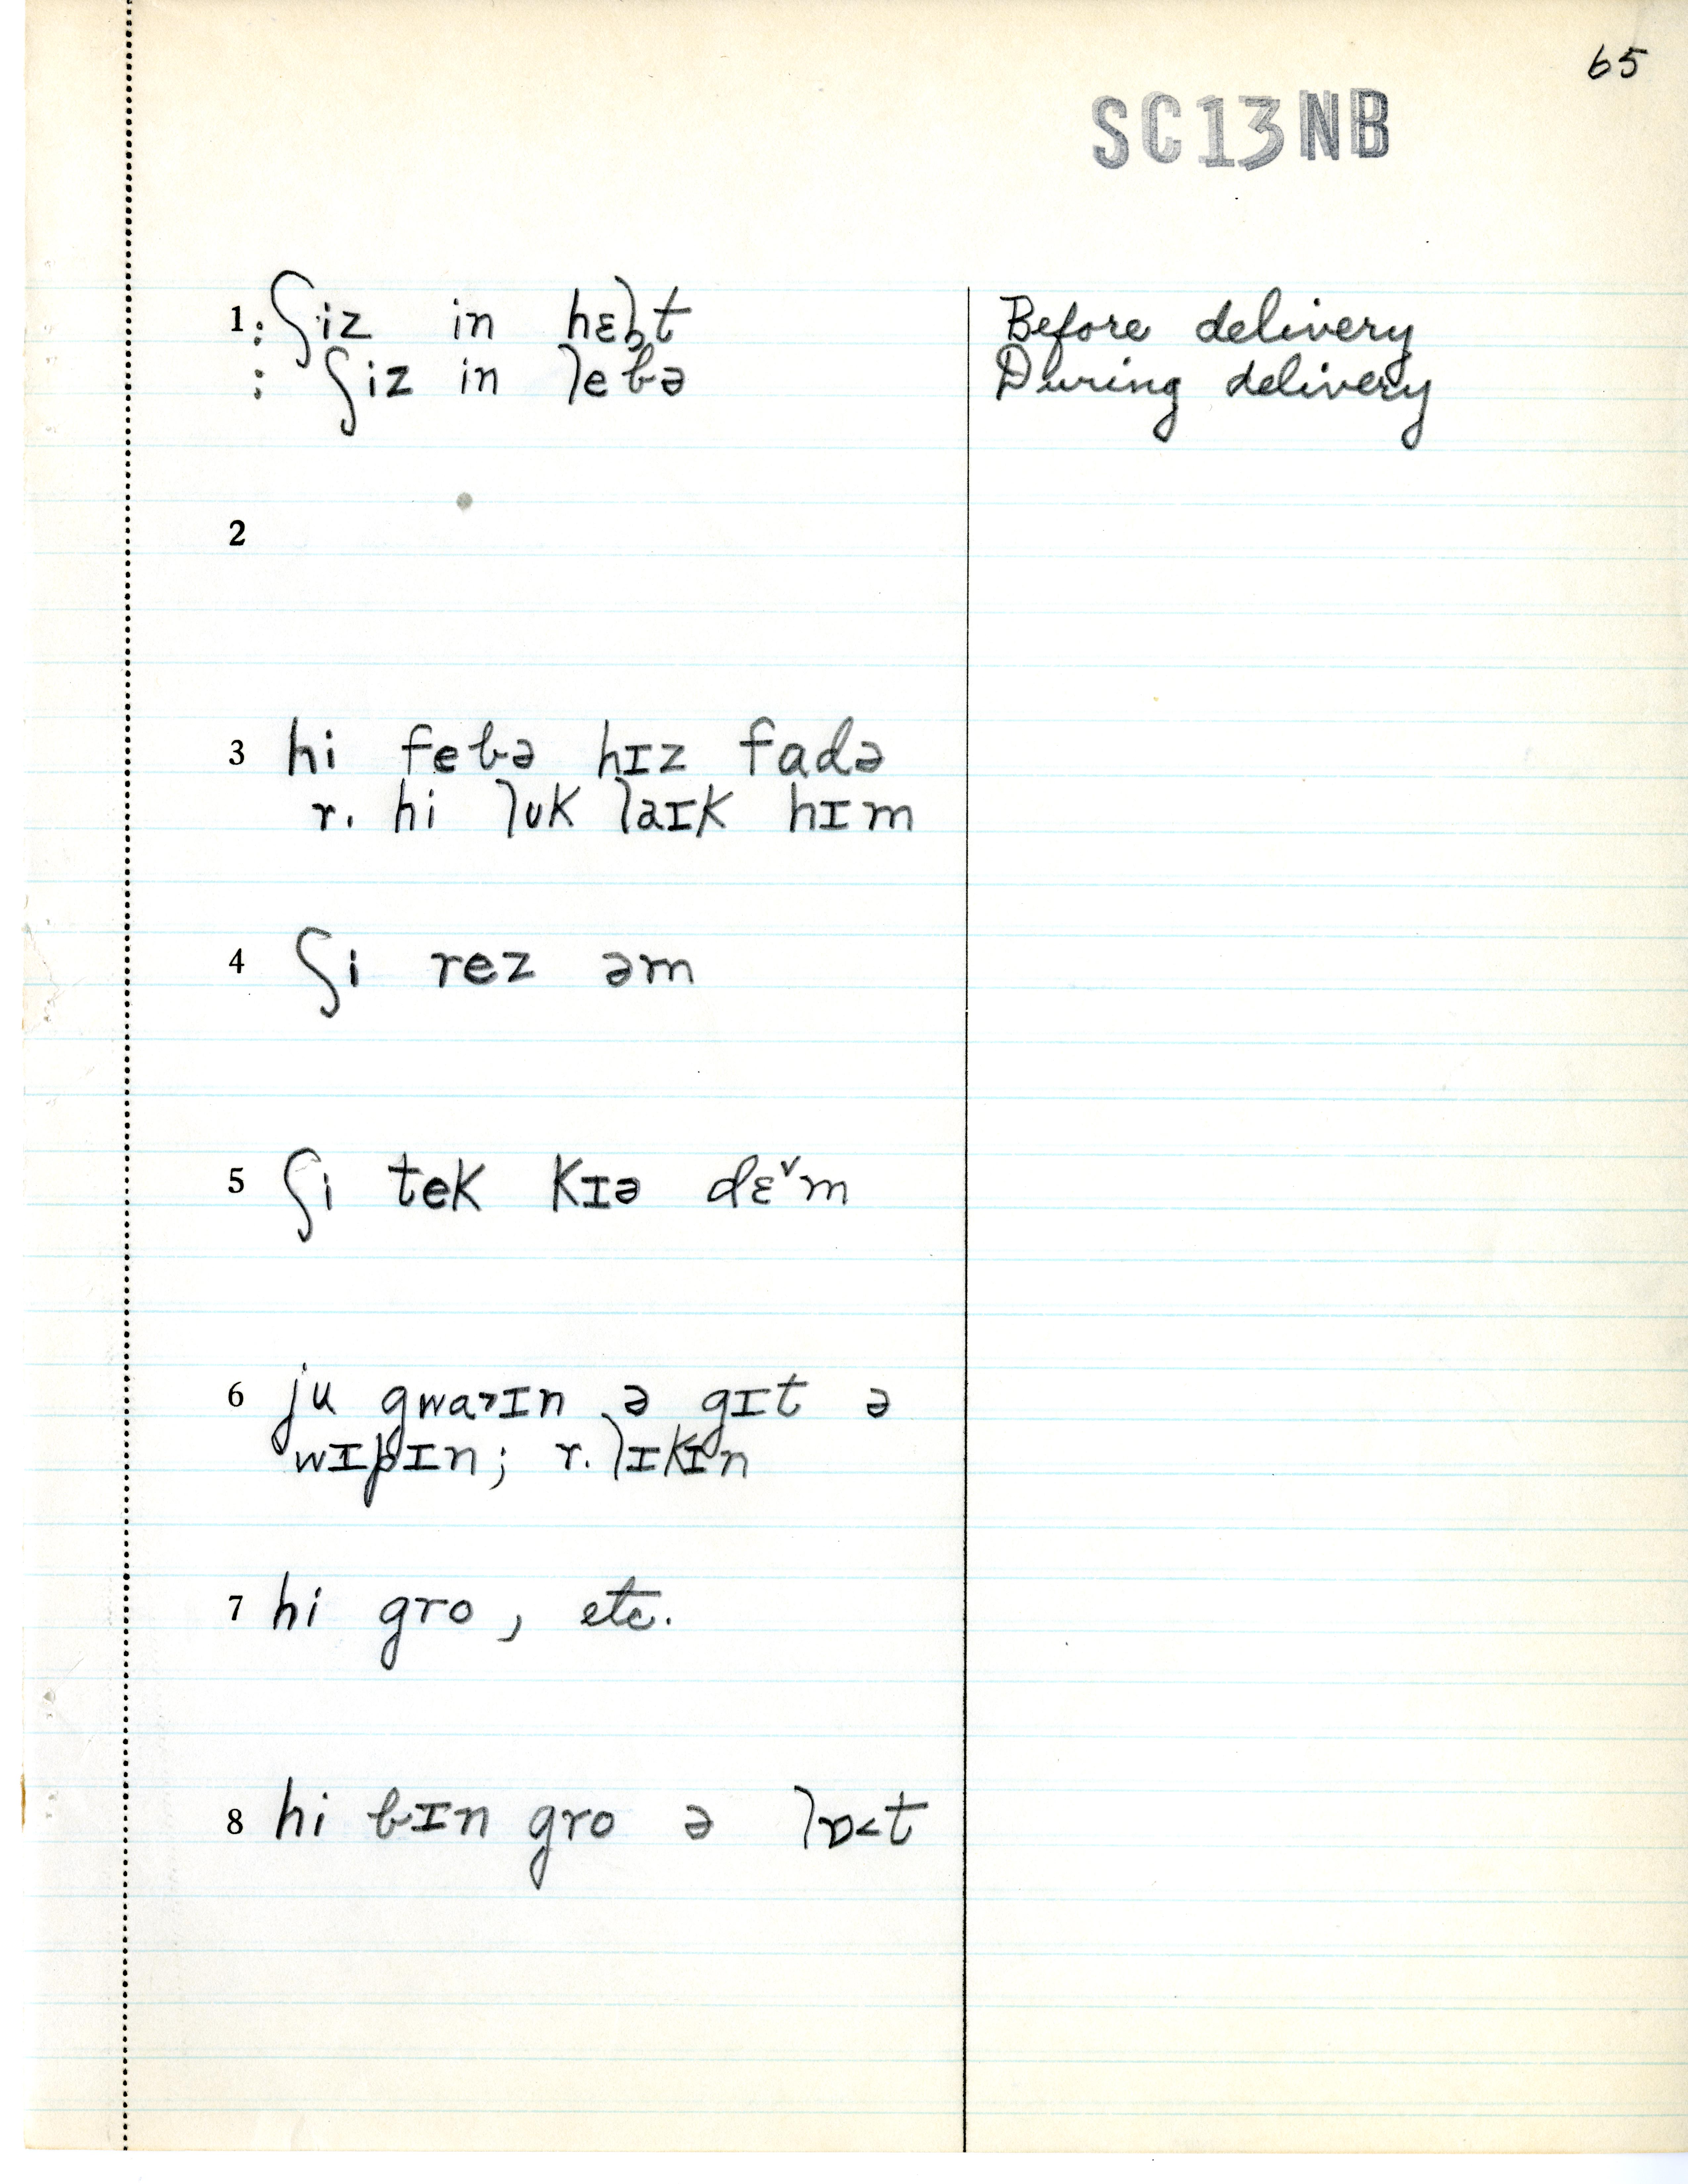 65
SC13NB
1 : ʃiz in hɛlt Before delivery
: ʃiz in lebə During delivery
2
3 hi febə hɪz fadə
r. hi lʊk laɪk hɪm
4 ʃi rez əm
5 ʃi tek kɪə dɛ˅m
6 ju gwa˃ɪn ə gɪt ə
wɪpɪn; r. lɪkɪn
7 hi gro, etc.
8 hi bɪn gro ə lɒ˂t